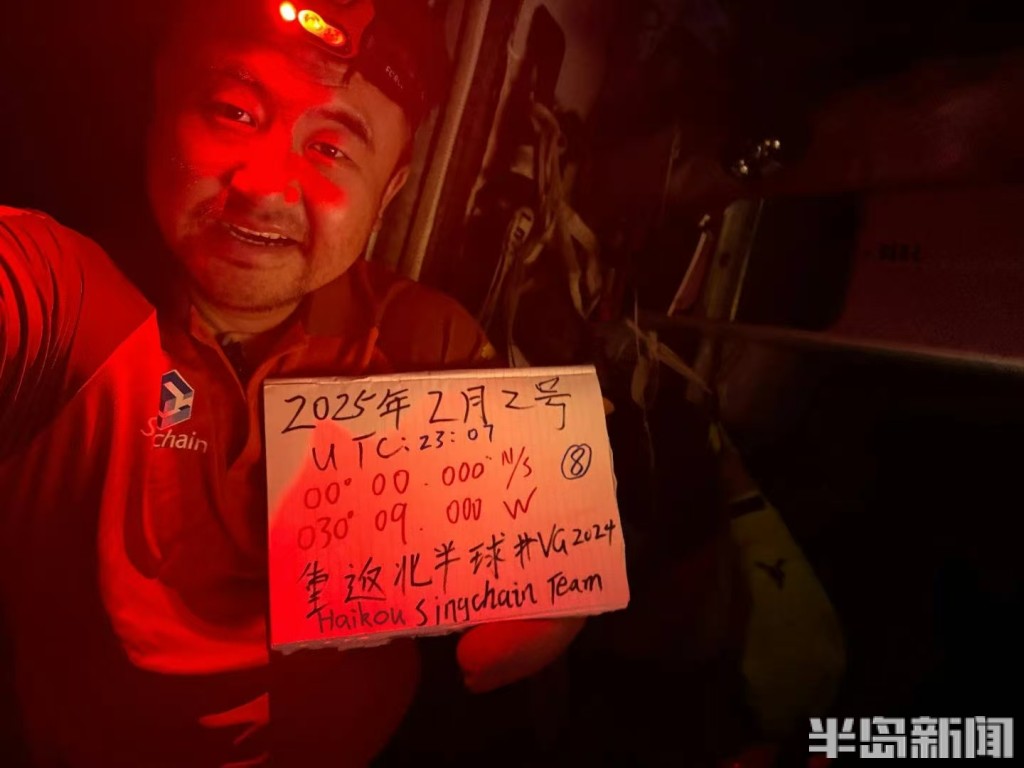 Schain
2025年2月2号
UTC:23:07
00° 00.000' N/S
⑧
030° 09.000 W
重返北半球#VG2024
Haikou Singchain Team
半岛新闻